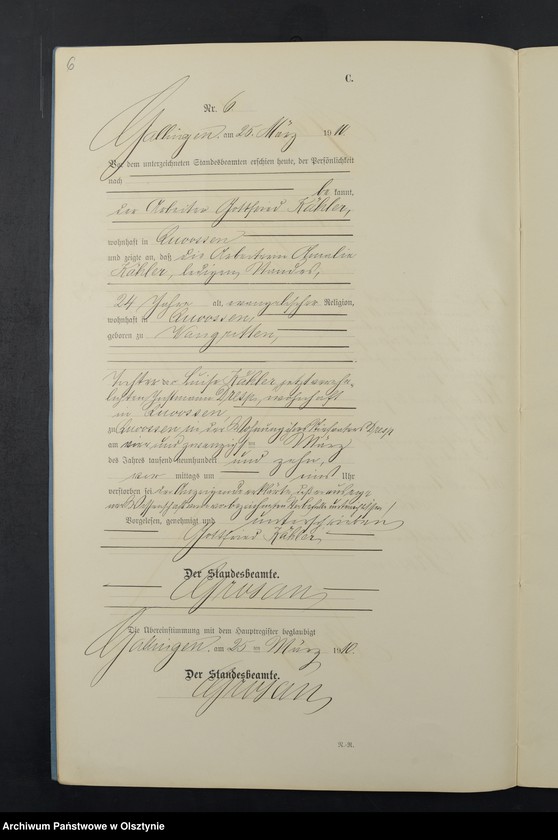 6
C.
Nr. 6
Gallingen am 25. März 1910.
Vor dem unterzeichneten Standesbeamten erschien heute, der Persönlichkeit
nach
be kannt,
der Arbeiter Gottfried Kähler,
wohnhaft in Quossen
und zeigte an, daß die Arbeiterin Amalie
Kähler, ledigen Standes,
24 Jahre alt, evangelischer Religion,
wohnhaft in Quossen,
geboren zu Wangritten,
Tochter der Luise Kähler, jetzt
wohnhaft
in Quossen,
zu Quossen in der Wohnung
am vier und zwanzigsten März
des Jahres tausend neunhundert und zehn,
vor mittags um ein Uhr
verstorben sei. Der Anzeigende erklärte,
Vorgelesen, genehmigt und unterschrieben
Gottfried Kähler
Der Standesbeamte.
Die Übereinstimmung mit dem Hauptregister beglaubigt
Gallingen, am 25. März 1910.
Der Standesbeamte.
N.-R.
Archiwum Państwowe w Olsztynie